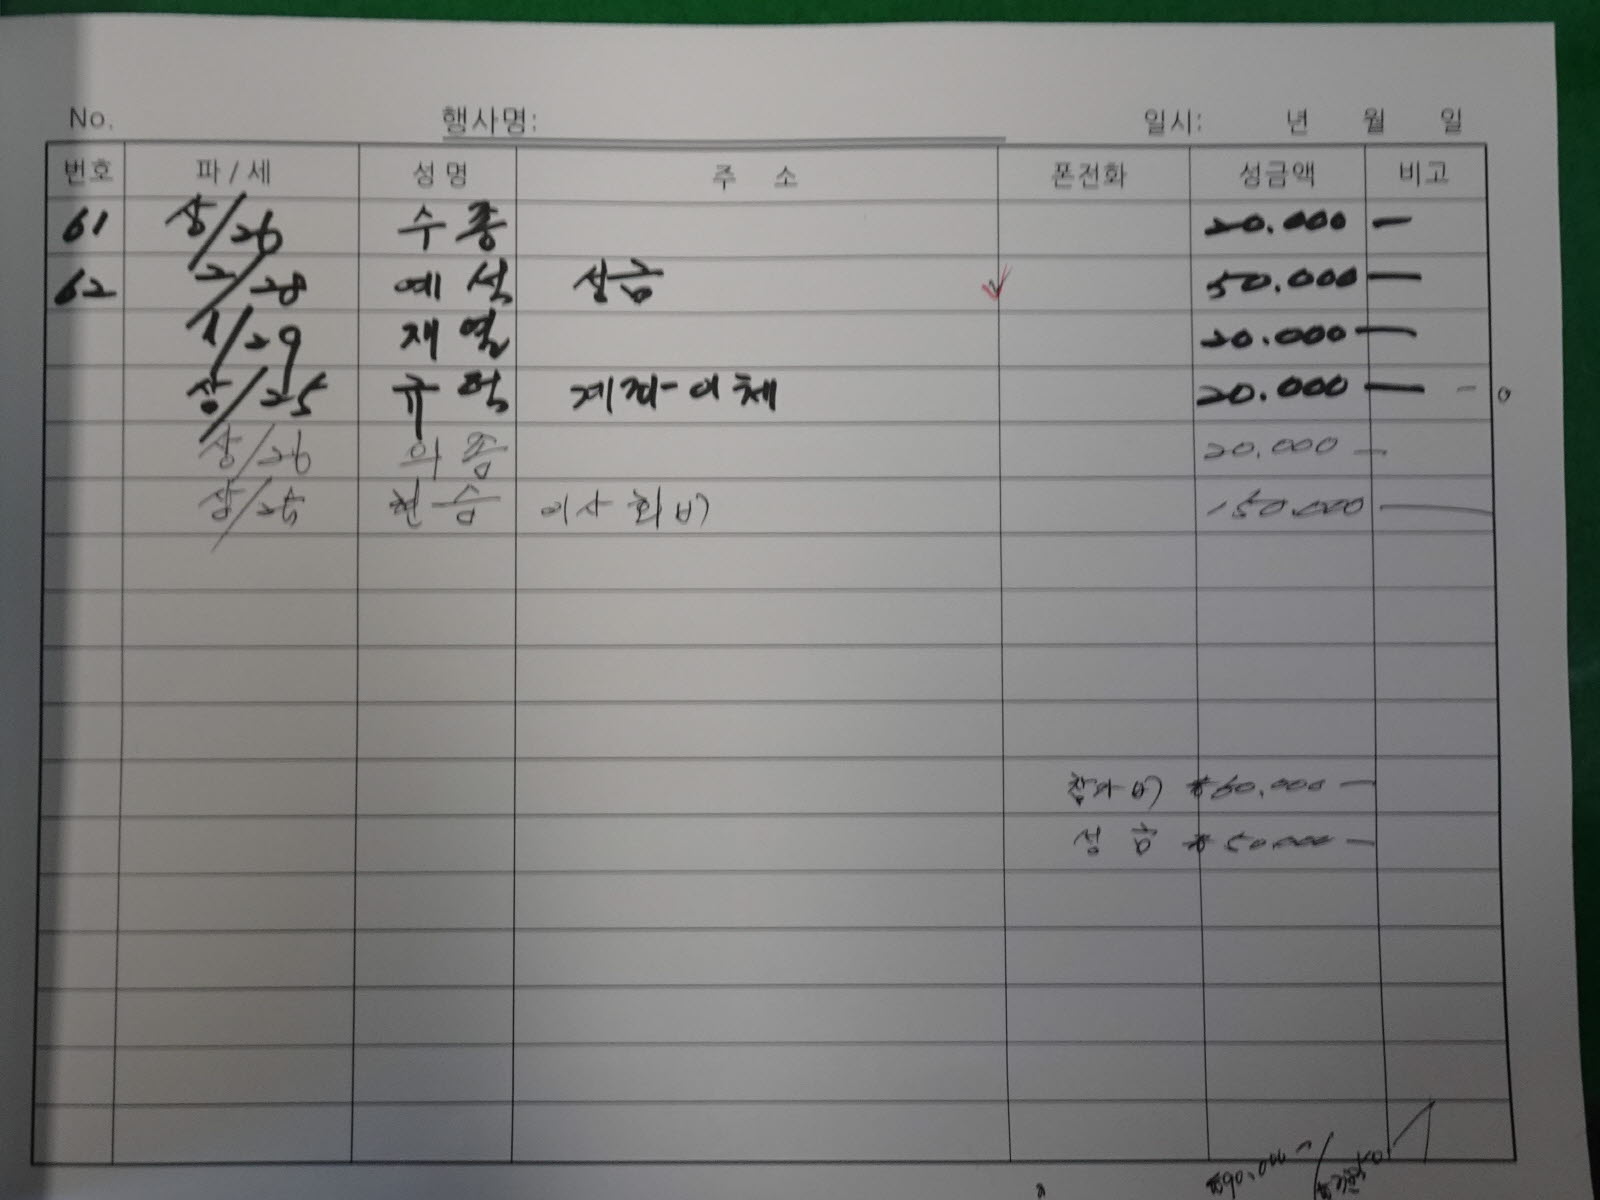 No. 행사명: 일시: 년 월 일
번호 파/세 성명 주 소 폰전화 성금액 비고
61 상/26 수종 20.000 —
62 2/28 예석 성금 50.000 —
1/29 재열 20.000 —
상/25 규혁 계좌-이체 20.000 —
상/26 의종 20.000 —
상/25 현승 이사회비 150.000 —
참가비 ₩60.000 —
성금 ₩50.000 —